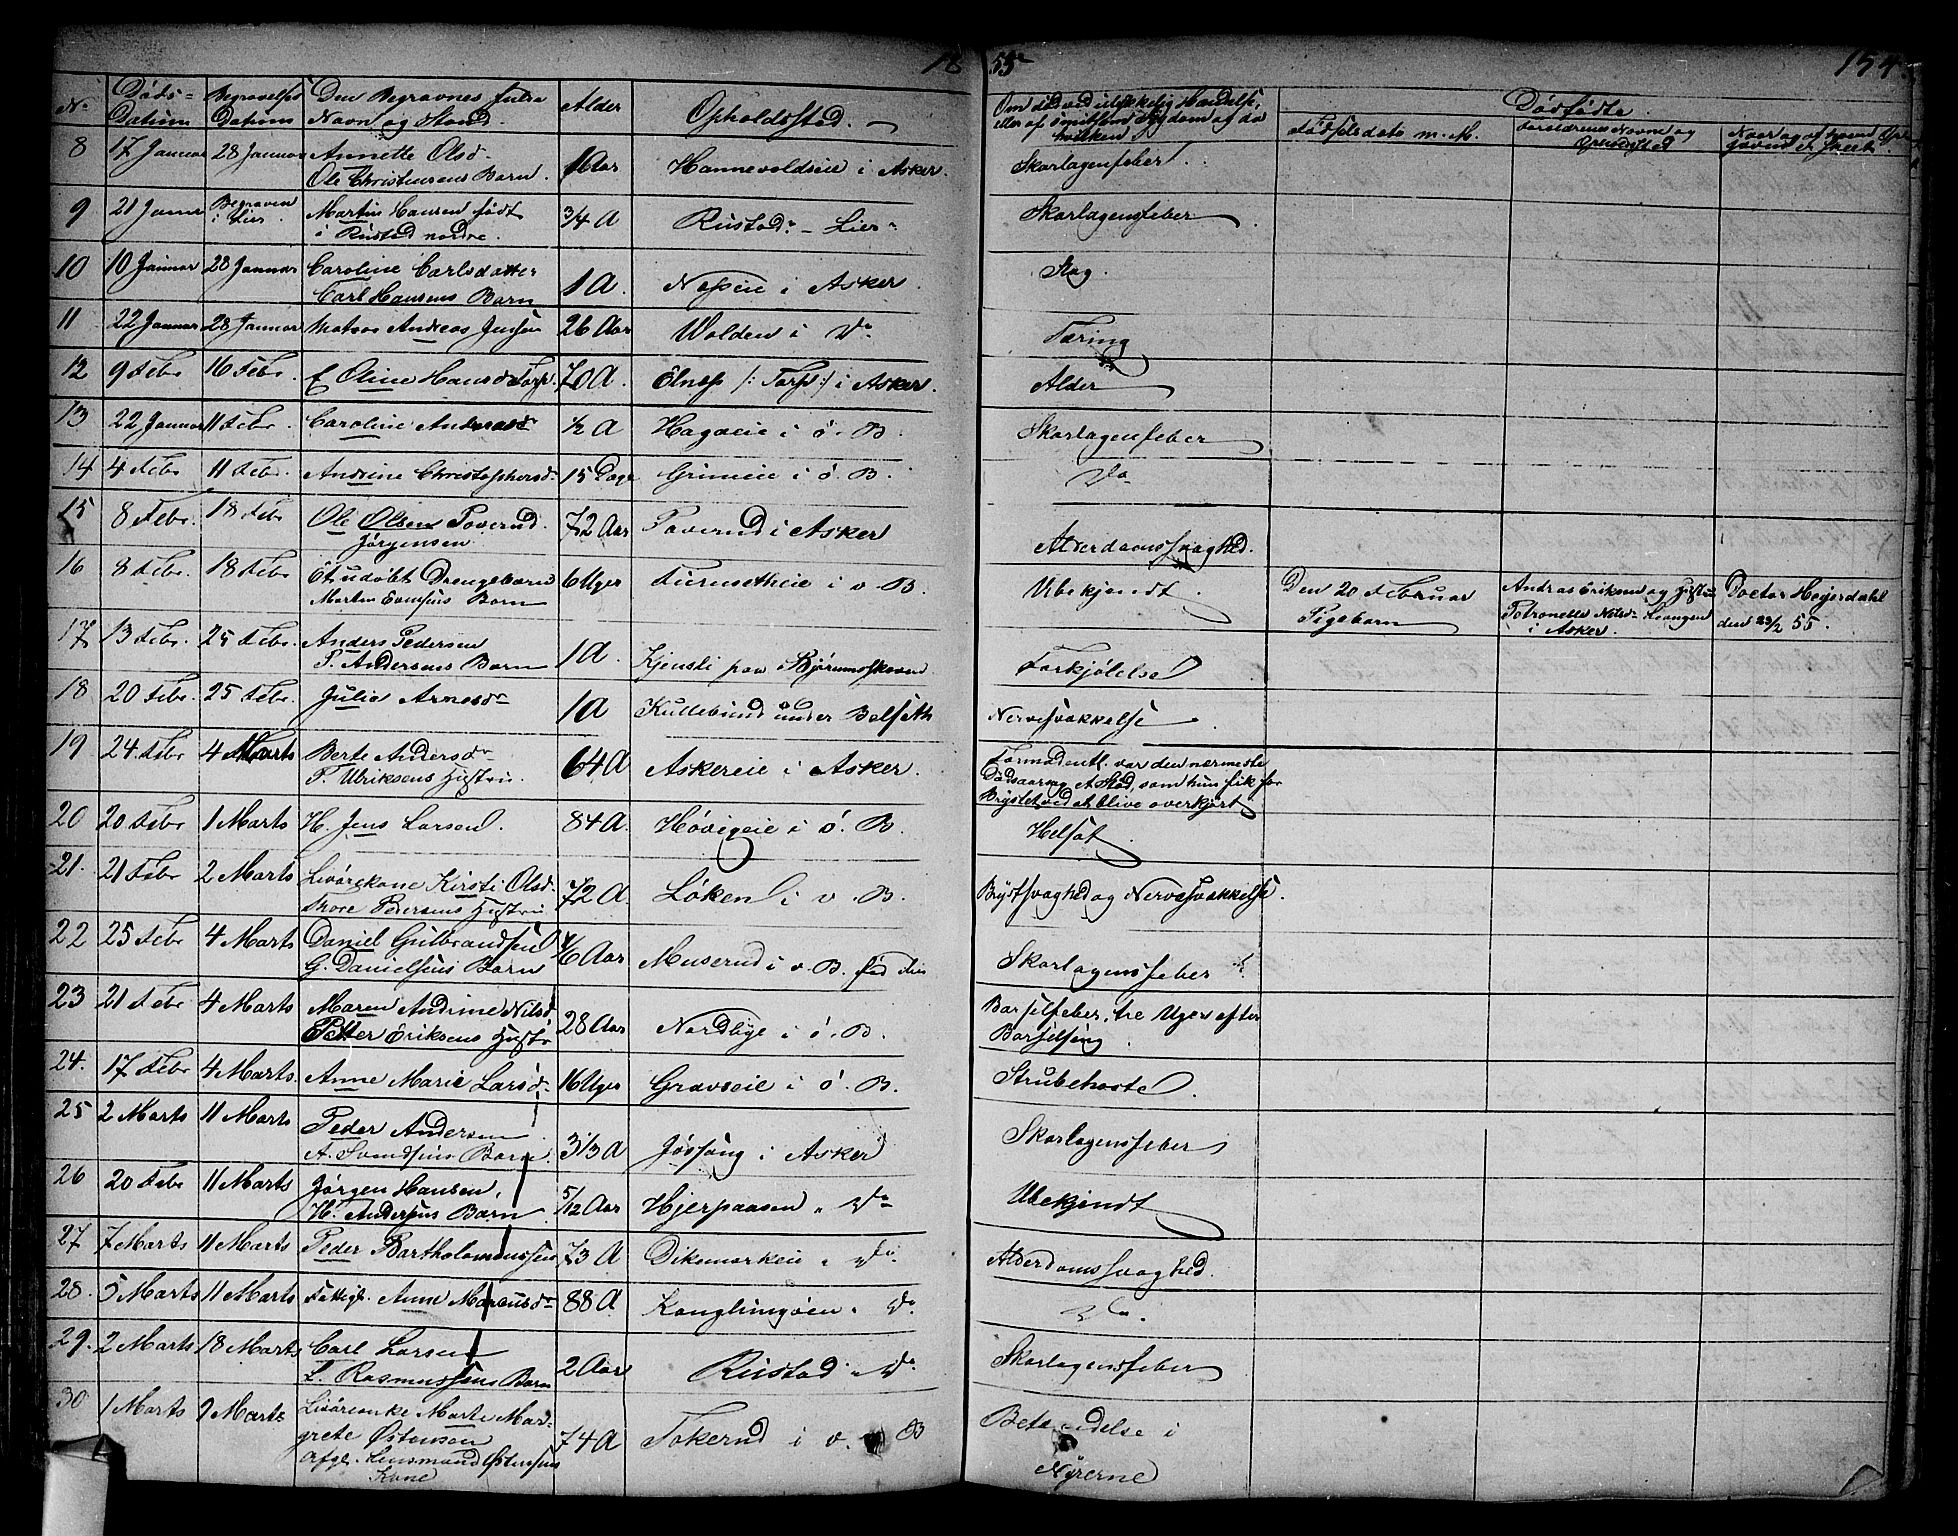 18 55
154.
No
Døds-Datum
Begravelses Datum
Den Begravnes fulde Navn og Stand.
Alder
Opholdssted.
Om død ved ulykkelig Hændelse, eller af smitsom Sygdom af da hvilken
Dødfødte.
Fødselsdato m. M.
Forældrenes Navne og Opholdsted
8 17 Januar 28 Januar Annette Olsd. 1 Aar Hannevoldseie i Asker. Skarlagenfeber
Ole Christensens Barn.
9 21 Januar Begraven i Lier. Martin Hansen født 3/4 A Rustad - Lier Skarlagensfeber
i Rustad nordre.
10 10 Januar 28 Januar Caroline Carlsdatter 1 A. Næseie i Asker.
Carl Hansens Barn
11 22 Januar 28 Januar Matros Andreas Jensen 26 Aar Volden i Do Tæring
12 9 Febr 16 Febr. E Oline Hansd Torp. 70 A. Elnes /: Torp :/ i Asker. Alder
13 22 Januar 11 Febr. Caroline Andersd 1/2 A Hagaeie i ö. B. Skarlagensfeber
14 4 Febr 11 Febr. Andrine Christophersd 15 Dage Grinieie i ö. B. Do
15 8 Febr. 18 Febr Ole Olsen Poverud. 72 Aar Poverud i Asker Alderdomssvaghed.
Jørgensen
16 8 Febr. 18 Febr Et udøbt Drengebarn 6 Uger Furusetheie i v. B. Ubekjendt. Den 20 Februar Andreas Eriksen og Hustru Doctor Heyerdahl
Morten Evensens Barn Pigebarn Petronelle Nilsd. Levangen den 23/2 55.
i Asker.
17 13 Febr. 25 Febr. Anders Pedersen 1 A. Kjenski paa Bjørumsskoven Forkjølelse
P. Andersens Barn
18 20 Febr. 25 Febr. Julia Arnesd 1 A Kullebund under Bølseth Nervesvækkelse
19 24 Febr 4 Marts Berte Andersd 64 A Askereie i Asker. Formodentl. var den nærmeste
P. Ulriksens Hustru. Dødsaarsag et Stød, som hun fik for
Brystet ved at blive overkjørt
20 20 Febr 1 Marts H. Jens Larsen. 84 A. Høvigeie i ö. B. Helsot
21. 21 Febr 2 Marts Livørekone Kirsti Olsd. 72 A. Løken i v. B. Brystsvaghed og Nervesvækkelse.
Tore Pedersens Hustru
22 25 Febr 4 Marts Daniel Gulbrandsen 1/6 Aar Muserud i v. B. Skarlagensfeber
G. Danielsens Barn
23 21 Febr 4 Marts Maren Andrine Nilsd 28 Aar Nordbye i ö. B. Barselfeber, tre Uger efter
Petter Eriksens Hustr Barselseng.
24. 17 Febr 4 Marts. Anne Marie Larsd. 16 Uger Gravseie i ö. B. Strubehoste.
25 2 Marts 11 Marts Peder Andersen 3 1/3 A Jøssong i Asker Skarlagensfeber
A. Svendsens Barn.
26 20 Febr 11 Marts Jørgen Hansen. 5/12 Aar Hjerpaasen " Do Ubekjendt
H. Andersens Barn
27 7 Marts 11 Marts Peder Bartholomæussen 73 A Dikemarkeie " Do. Alderdomssvaghed.
28. 5 Marts 11 Marts Fattigl. Anne Marcusd 88 A Konglungöen " Do Do.
29. 2 Marts 18 Marts Carl Larsen 2 Aar Rustad " Do Skarlagensfeber
L. Rasmussens Barn
30 1 Marts 9 Marts Livöreenke Marte Mar- 74 A Tokerud i v. B Betændelse i
grete Østensen Nyrerne
afg. Lensmand Østensens
Kone